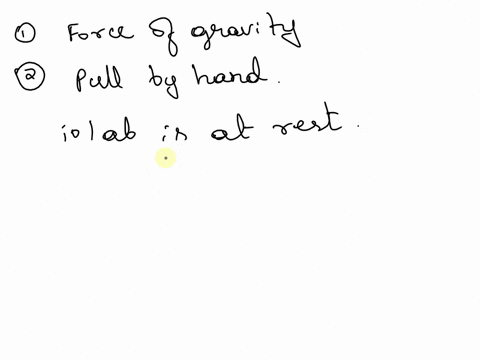 ① Force of gravity
② Pull by hand.
iolab is at rest.